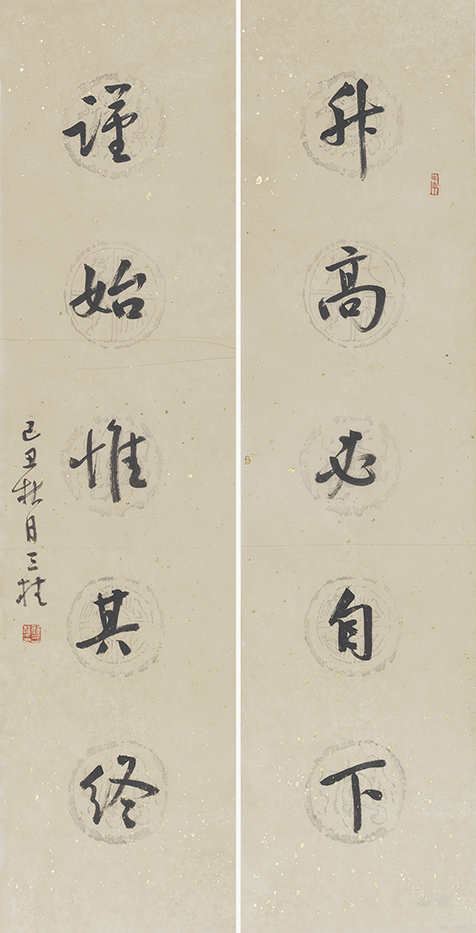 升高必自下
谨始惟其终
己丑秋月三桂